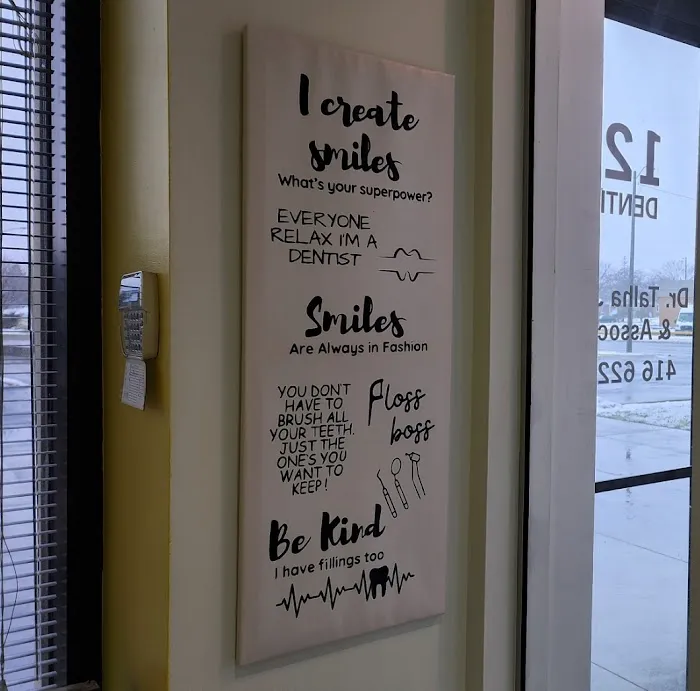 I create
smiles
What's your superpower?
EVERYONE
RELAX I'M A
DENTIST
Smiles
Are Always in Fashion
YOU DON'T
HAVE TO
BRUSH ALL
YOUR TEETH.
JUST THE
ONES YOU
WANT TO
KEEP!
Floss
boss
Be Kind
I have fillings too
12
DENTI
Dr. Talha
& Assoc
416 622